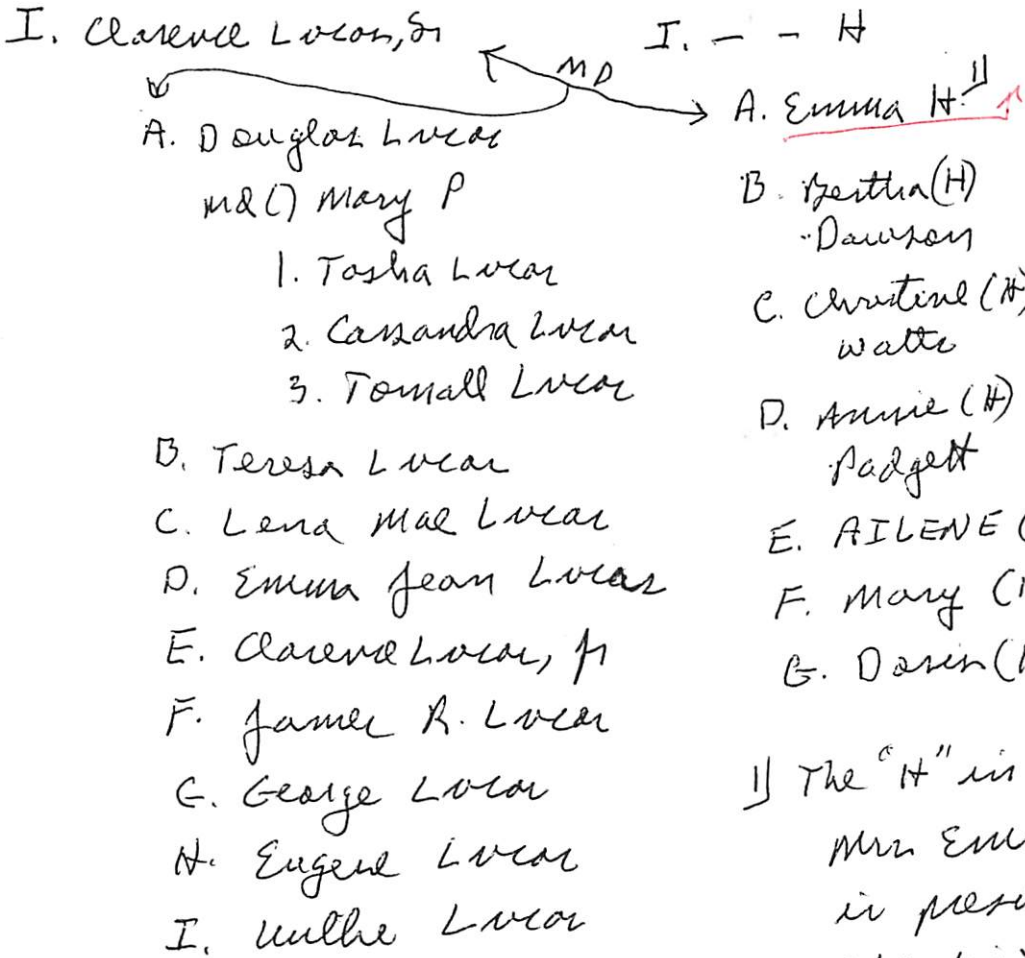 I. Clarence Lucas, Sr
MD
A. Douglas Lucas
md () Mary P
1. Tosha Lucas
2. Cassandra Lucas
3. Lucas
B. Teresa Lucas
C. Lena Mae Lucas
D. Emma Jean Lucas
E. Clarence Lucas, Jr
F. James R. Lucas
G. George Lucas
H. Eugene Lucas
I. Lucas
I. - - H
A. Emma H. 1)
B. Bertha (H)
Dawson
C. Christine (H)
Watts
D. Annie (H)
Padgett
E. AILENE (
F. Mary (
G. Doris (
1) The "H" in
Mrs
is